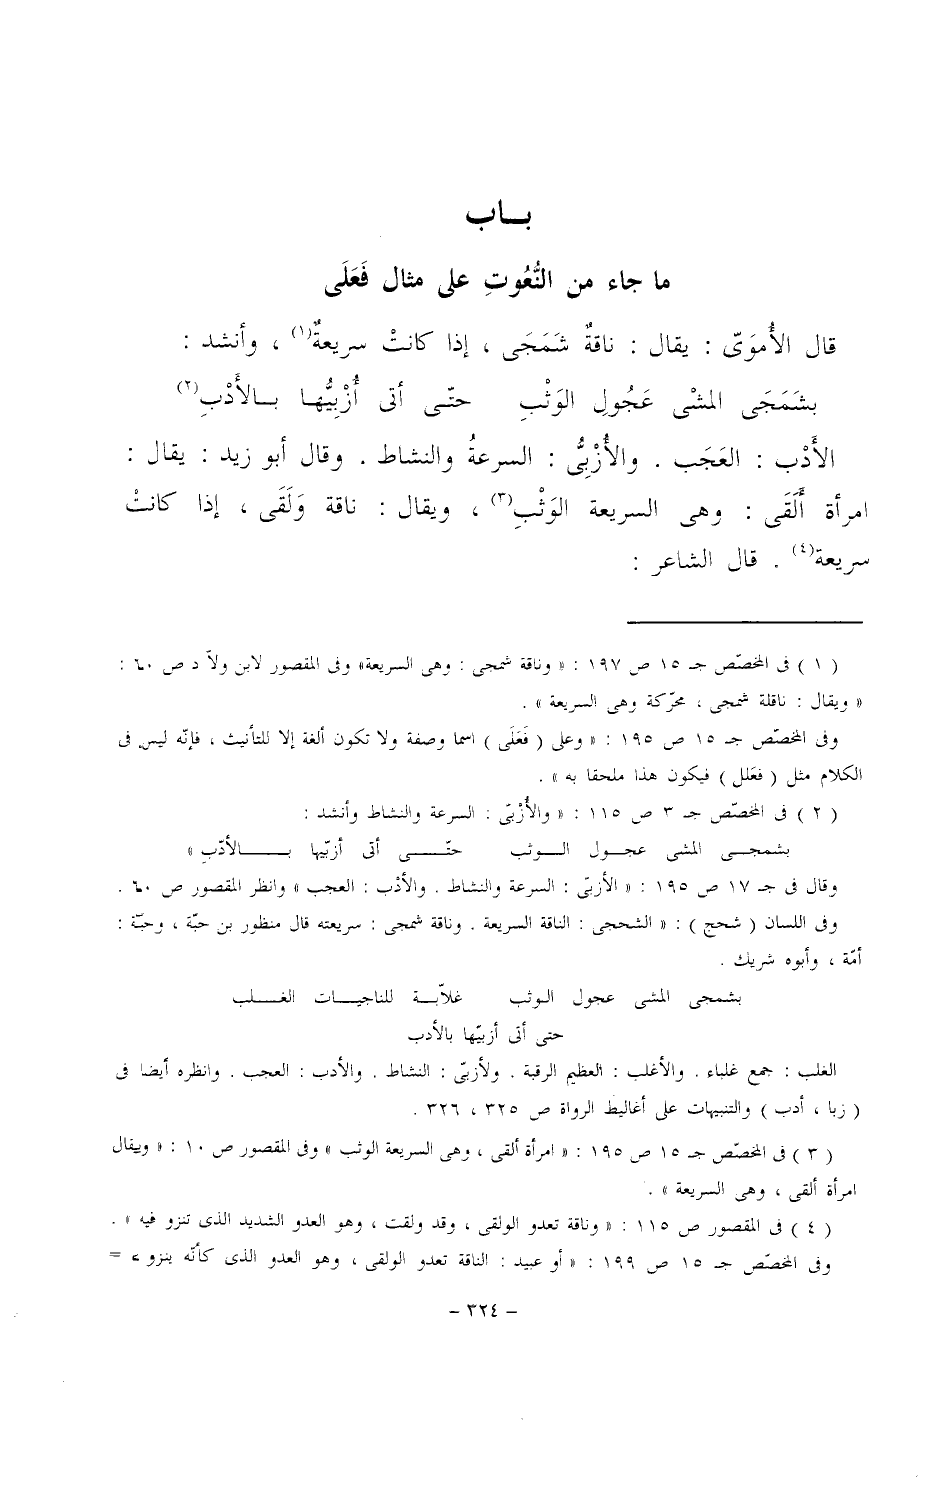 بـــاب
ما جاء من النُّعُوتِ على مثال فَعَلَى
قال الأُموَىّ : يقال : ناقةٌ شَمَجَى ، إذا كانتْ سريعةٌ(١) ، وأنشد :
بشَمَجَى المشْى عَجُولِ الوَثْبِ حتّــى أتى أُزْبِيُّهــا بــالأَدْبِ(٢)
الأَدْب : العَجَب . والأُزْبِىُّ : السرعةُ والنشاط . وقال أبو زيد : يقال :
امرأة أَلَقَى : وهى السريعة الوَثْبِ(٣) ، ويقال : ناقة وَلَقَى ، إذا كانتْ
سريعة(٤) . قال الشاعر :
( ١ ) فى المخصّص جـ ١٥ ص ١٩٧ : « وناقة شمجى : وهى السريعة» وفى المقصور لابن ولاّ د ص ٦٠ :
« ويقال : ناقلة شمجى ، محرّكة وهى السريعة » .
وفى المخصّص جـ ١٥ ص ١٩٥ : « وعلى ( فَعَلَى ) اسما وصفة ولا تكون ألفة إلا للتأنيث ، فإنّه ليس فى
الكلام مثل ( فعَلل ) فيكون هذا ملحقا به » .
( ٢ ) فى المخصّص جـ ٣ ص ١١٥ : « والأُزْبىّ : السرعة والنشاط وأنشد :
بشمجــى المشى عجــول الــوثب حتّــــى أتى أزبيّها بـــــالأدّبِ »
وقال فى جـ ١٧ ص ١٩٥ : « الأزبىّ : السرعة والنشاط . والأدْب : العجب » وانظر المقصور ص ٦٠ .
وفى اللسان ( شحج ) : « الشحجى : الناقة السريعة . وناقة شمجى : سريعته قال منظور بن حبّة ، وحبّة :
أمّة ، وأبوه شريك .
بشمجى المشى عجول الوثب غلاّبــة للناجيــات الغــلب
حتى أتى أزبيّها بالأدب
الغلب : جمع غلباء . والأغلب : العظيم الرقبة . ولأزبىّ : النشاط . والأدب : العجب . وانظره أيضا فى
( زبا ، أدب ) والتنبيهات على أغاليط الرواة ص ٣٢٥ ، ٣٢٦ .
( ٣ ) فى المخصّص جـ ١٥ ص ١٩٥ : « امرأة ألقى ، وهى السريعة الوثب » وفى المقصور ص ١٠ : « ويقال
امرأة ألقى ، وهى السريعة » .
( ٤ ) فى المقصور ص ١١٥ : « وناقة تعدو الولقى ، وقد ولقت ، وهو العدو الشديد الذى تنزو فيه » .
وفى المخصّص جـ ١٥ ص ١٩٩ : « أو عبيد : الناقة تعدو الولقى ، وهو العدو الذى كأنّه ينزو » =
- ٣٢٤ -